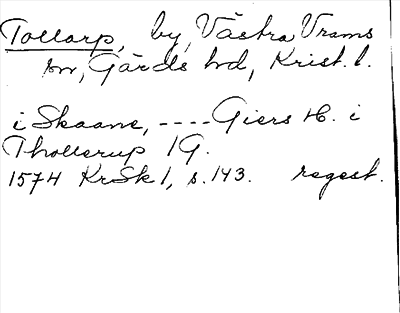 Tollarp, by, Västra Vrams
sn, Gärds hd, Krist. l.
i Skaane, ---- Giers H. i
Thollerup 1G.
1574 KrSk 1, s. 143. regest.